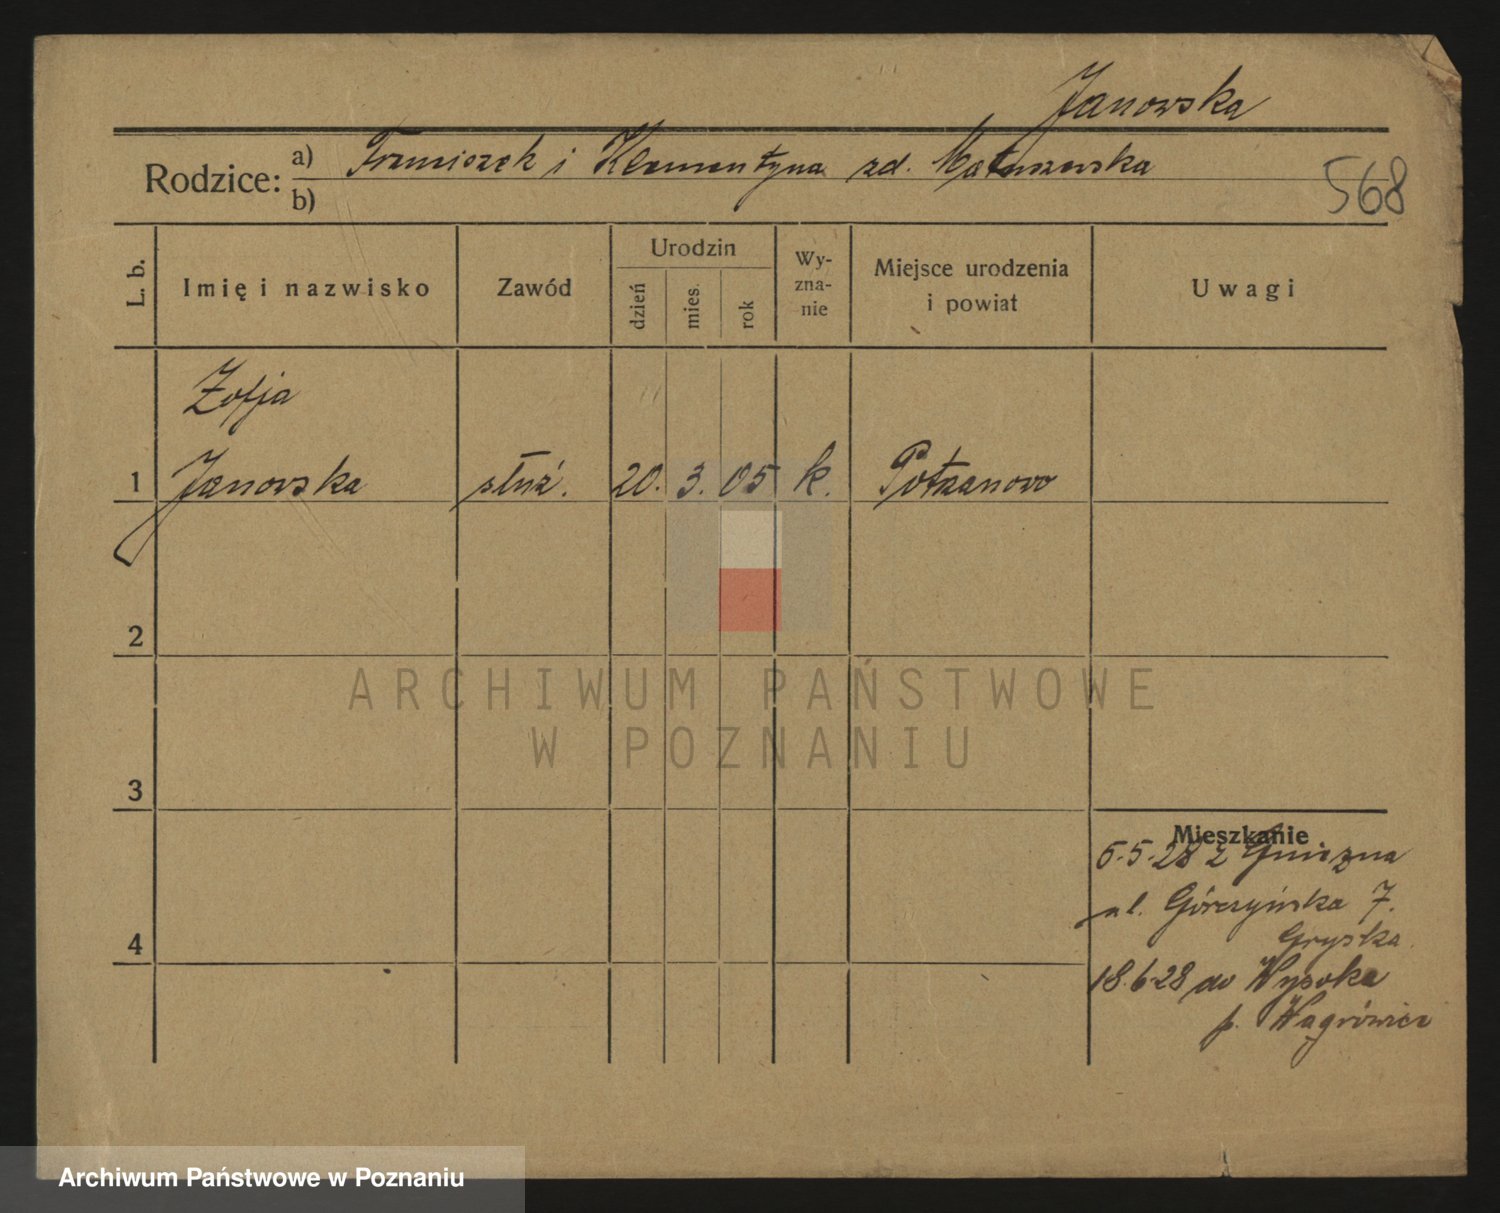 Janowska
Rodzice: a) Franciszek i Klementyna zd. Matuszewska
b)
568
L. b.
Imię i nazwisko
Zawód
Urodzin
dzień
mies.
rok
Wy-
zna-
nie
Miejsce urodzenia
i powiat
Uwagi
Zofja
1 Janowska służ. 20. 3. 05 k. Potrzanowo
2
ARCHIWUM PAŃSTWOWE
W POZNANIU
3
Mieszkanie
5-5-28 z Gniezna
ul. Górczyńska 7.
Gryska
4
18.6-28 do Wysoka
p. Wągrówiec
Archiwum Państwowe w Poznaniu